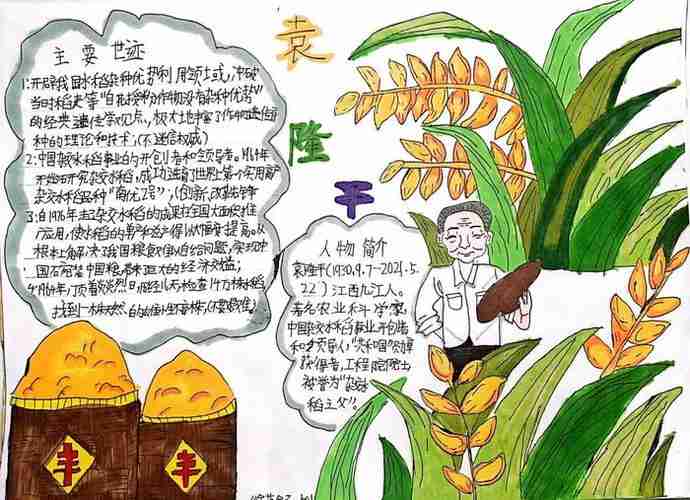 袁
隆
平
主要事迹
1:开辟我国水稻杂种优势利用领域,冲破
当时稻史等“自花授粉作物没有杂种优势”
的经典遗传学观点,极大地丰富了作物遗传育
种的理论和技术;(不迷信权威)
2:中国杂交水稻事业的开创者和领导者。1964年
开始研究杂交水稻,成功选育了世界上第一个实用高产
杂交水稻品种“南优2号”;(创新,改革
3:自1976年起杂交水稻的成果在全国大面积推
广应用,使水稻的单产和总产得以大幅度提高。从
根本上解决了我国粮食自给问题,实现中
国巨大的经济效益;
4:1964年,顶着炎炎烈日,历经几天,检查14万株水稻
找到一株天然的雄性不育株。
人物简介
袁隆平(1930.9.7-2021.5.
22)江西九江人。
著名农业科学家,
中国杂交水稻事业开创者
和领导人,“共和国勋章”
获得者,工程院院士
被誉为“杂交
稻之父”。
丰
丰